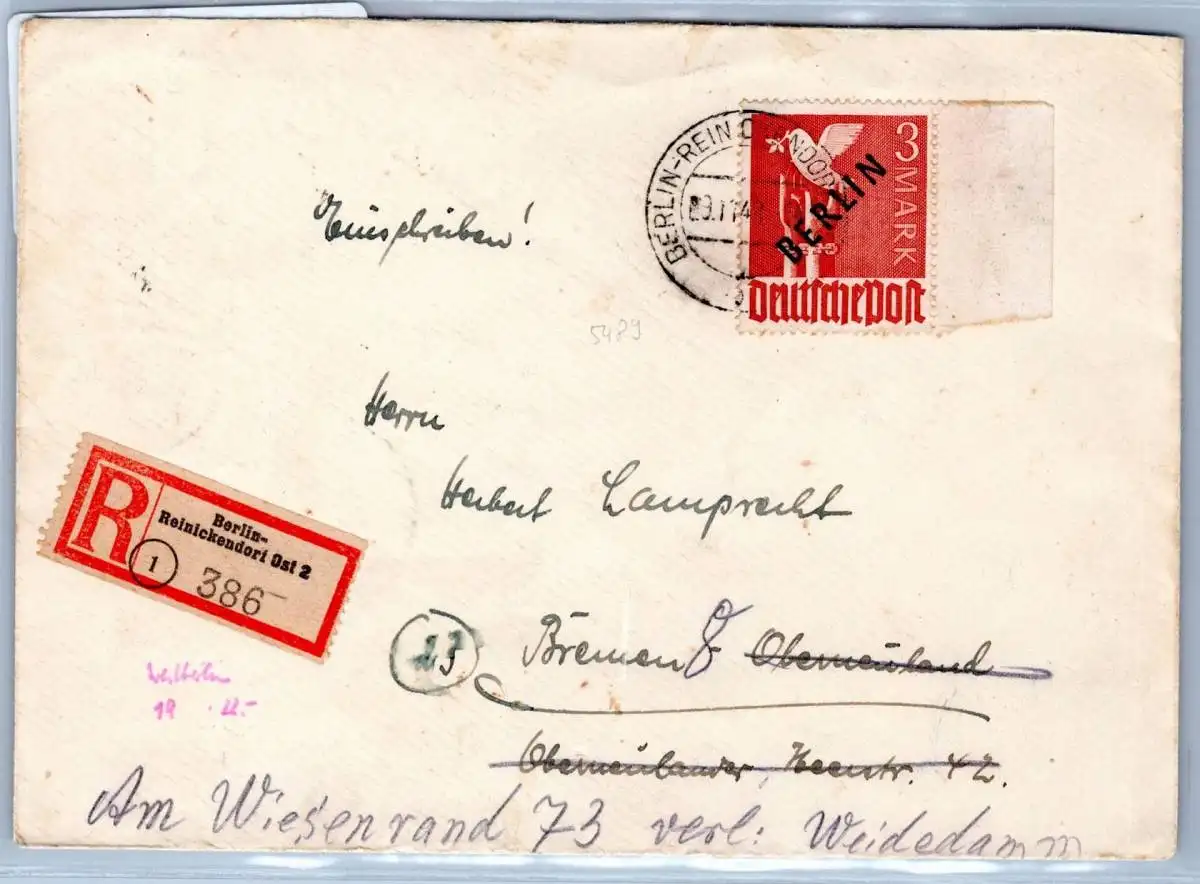 BERLIN-REINICKENDORF
29.11.49
3 MARK
BERLIN
Deutsche Post
Einschreiben!
5489
Herrn
Herbert Lamprecht
R
Berlin-
Reinickendorf Ost 2
1
386
Bremen 8 Oberneuland
Oberneulander Heerstr. 42.
Westberlin
19 . 22.-
Am Wiesenrand 73 verl: Weidedamm